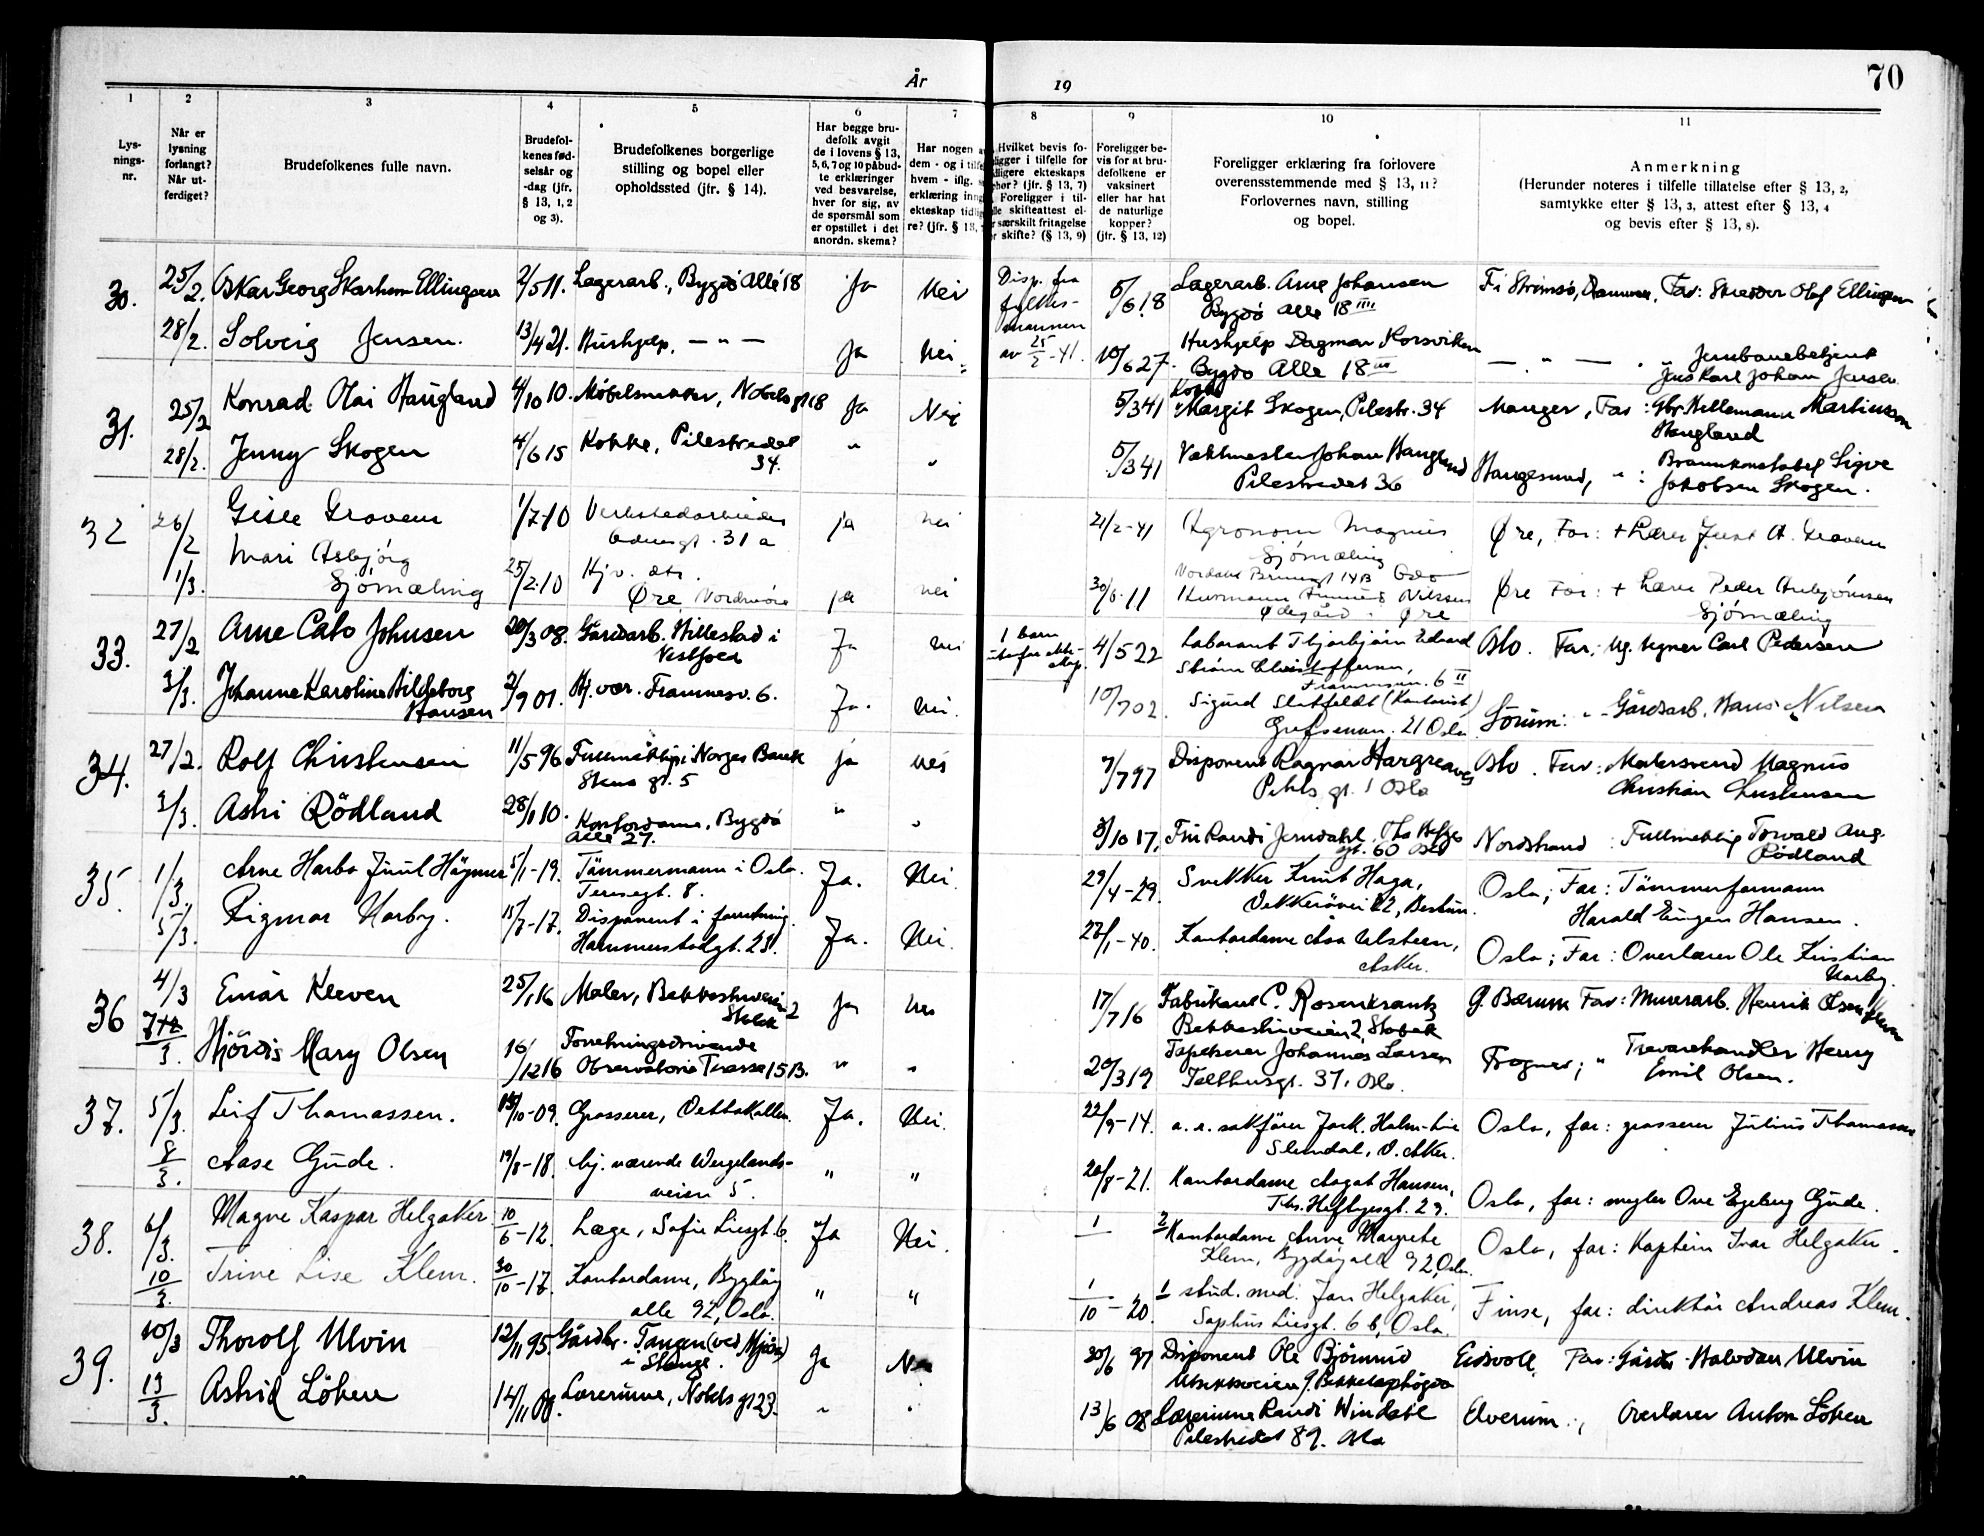 År 19
70
1 2 3 4 5 6 7 8 9 10 11
Lys-
nings-
nr.
Når er
lysning
forlangt?
Når ut-
ferdiget?
Brudefolkenes fulle navn.
Brudefol-
kenes fød-
selsår og
-dag (jfr.
§ 13, 1, 2
og 3).
Brudefolkenes borgerlige
stilling og bopel eller
opholdssted (jfr. § 14).
Har begge bru-
defolk avgit
de i lovens § 13,
5, 6, 7 og 10 påbud-
te erklæringer
ved besvarelse,
hver for sig, av
de spørsmål som
er opstillet i det
anordn. skema?
Har nogen
dem - og i
hvem - iflg.
erklæring
ekteskap
re? (jfr. § 13,
Hvilket bevis fo-
i tilfelle for
ekteskaps
(jfr. § 13, 7)
Foreligger i til-
skifteattest el-
særskilt fritagelse
skifte? (§ 13, 9)
Foreligger be-
vis for at bru-
defolkene er
vaksinert
eller har hat
de naturlige
kopper?
(jfr. § 13, 12)
Foreligger erklæring fra forlovere
overensstemmende med § 13, 11?
Forlovernes navn, stilling
og bopel.
Anmerkning
(Herunder noteres i tilfelle tillatelse efter § 13, 2,
samtykke efter § 13, 3, attest efter § 13, 4
og bevis efter § 13, 8).
30. 25/2. Oskar Georg Skarheim Ellingsen 2/5 11. Lagerarb., Bygdø Allé 18 Ja Nei Disp. fra 5/6 18 Lagerarb. Arne Johansen
fylkes-
mannen
av 25/2-41.
Bygdø Alle 18 III
Strømsø, Far: Skredder Olaf Ellingsen
28/2. Solveig Jensen. 13/4 21. Hushjelp, — " — Ja Nei 10/6 27. Hushjelp Dagmar Korsviken
Bygdø Alle 18 III
— " — " Jernbanebetjent
Jens Karl Johan Jensen
31. 25/2 Konrad Olai Haugland 4/10 10. Møbelsnekker, Nobels gt 18 Ja Nei 5/3 41 Kokke
Margit Skogen, Pilestr. 34 Manger, Far: Gbr. Martinsson
Haugland
28/2. Jenny Skogen 4/6 15 Kokke, Pilestredet
34. " " 5/3 41 Vaktmester Johan Haugland
Pilestredet 36
Haugesund, " : Brannkonstabel Sigve
Jakobsen Skogen.
32 26/2 Gisle Gravem 1/7-10 Verkstedarbeider
31 a ja nei 21/2-41 Agronom Magnus
Sjømæling
Oslo
Øre, Far: + Lærer Just A. Gravem
1/3. Mari Asbjørg
Sjømæling 25/2-10 Hj.v. dtr.
Øre Nordmøre ja nei 30/6-11 Nilssen
Ødegård i Øre
Øre Far: + Lærer Peder Asbjørnsen
Sjømæling
33. 27/2 Arne Cato Johnsen 20/3 08. Gårdsarb. Hillestad i
Vestfold Ja Nei 1 barn
4/5 22 Laborant Thorbjørn Edvard
Strøm Christoffersen,
Framnesv. 6 II
Oslo. Far: Carl Pedersen
3/3. Johanne Karoline Hildeborg
Hansen 2/9 01. Hj. vær. Framnesv. 6. Ja. Nei. 10/7 02. Sigurd Slatfeldt (Kontorist)
Grefsenvn. 21 Oslo
Sørum: " Gårdsarb. Hans Nilsen
34. 27/2. Rolf Christensen 11/5 96 Fullmektig i Norges Bank
Stens gt. 5 ja nei 7/7 97 Disponent Ragnar Hargreaves
Pihls gt. 1 Oslo
Oslo. Far: Malersvend Magnus
Christian Christensen
3/3. Astri Rödland 28/1 10. Kontordame, Bygdø
Alle 27. " " 3/10 17. Frk Randi Jerndahl, Ths. Heftyes
gt. 60 Oslo
Nordstrand : Fullmektig Torvald Aug.
Rødland
35. 1/3. Arne Harbo Juul Høgmer 5/1-19. Tømmermann i Oslo.
Teresegt. 8. Ja. Nei. 29/4-29. Snekker Knut Haga,
Vekkerøvei 22, Bestun.
Oslo; Far: Tømmerformann
Harald Eugen Hansen.
5/3. Rigmor Harby. 15/7-17. Disponent i forretning
Hammerstadgt. 23. Ja. Nei. 22/1-40. Kontordame Åsa Ulsteen,
Asker.
Oslo; Far: Overlærer Ole Kristian
Harby
36 4/3 Einar Kleven 25/1 16 Maler, Bekkestuveien 2
Stabæk Ja Nei 17/7 16 Fabrikant C. Rosenkrantz
Bekkestuveien 2, Stabæk
Ø. Bærum Far: Murerarb. Henrik Olsen Kleven
7/3. Hjördis Mary Olsen 16/12 16 Forretningsdrivende
Observatorie Terasse 15 B. " " 20/3 19 Tapetserer Johannes Larsen
Tøfthusgt. 37, Oslo.
Frogner; " Trevarehandler Henry
Emil Olsen.
37. 5/3. Leif Thomassen. 15/10-09. Grosserer, Vettakollen. Ja. Nei. 22/9-14. o. r. sakfører Jack. Holm-Lie
Slemdal, V. Aker.
Oslo, far: grosserer Julius Thomassen
8/3. Aase Gude. 19/8-18. hj. værende Wergelands-
veien 5. " " 20/8-21. Kontordame Aagot Hansen,
Ths. Heftyesgt. 29.
Oslo, far: megler Ove Egeberg Gude.
38. 6/3. Magne Kaspar Helgaker 10/6-12. Læge, Sofus Liesgt. 6. Ja Nei. 1 2 Kontordame Anne Margrete
Klem, Bygdøyalle 92, Oslo.
Oslo, far: Kaptein Ivar Helgaker.
10/3. Trine Lise Klem. 30/10-17. Kontordame, Bygdøy
alle 92, Oslo. " " 1/10-20. 1 stud. med. Jan Helgaker,
Sophus Liesgt. 6 b, Oslo.
Finse, far: direktør Andreas Klem.
39. 10/3 Thorolf Ulvin 12/11 95 Gårdbr. Tangen (ved Mjøsa)
i Stange. Ja Nei 30/6 97 Disponent Ole Bjørnrud
9. Bekkelagshøgda
Eidsvoll, Far: Gårdbr. Halvdan Ulvin
13/3. Astrid Löken 14/11 00. Lærerinne, Nobels gt 23. " " 13/6 08 Lærerinne Randi Windahl
Pilestredet 89. Oslo
Elverum. " Overlærer Anton Löken